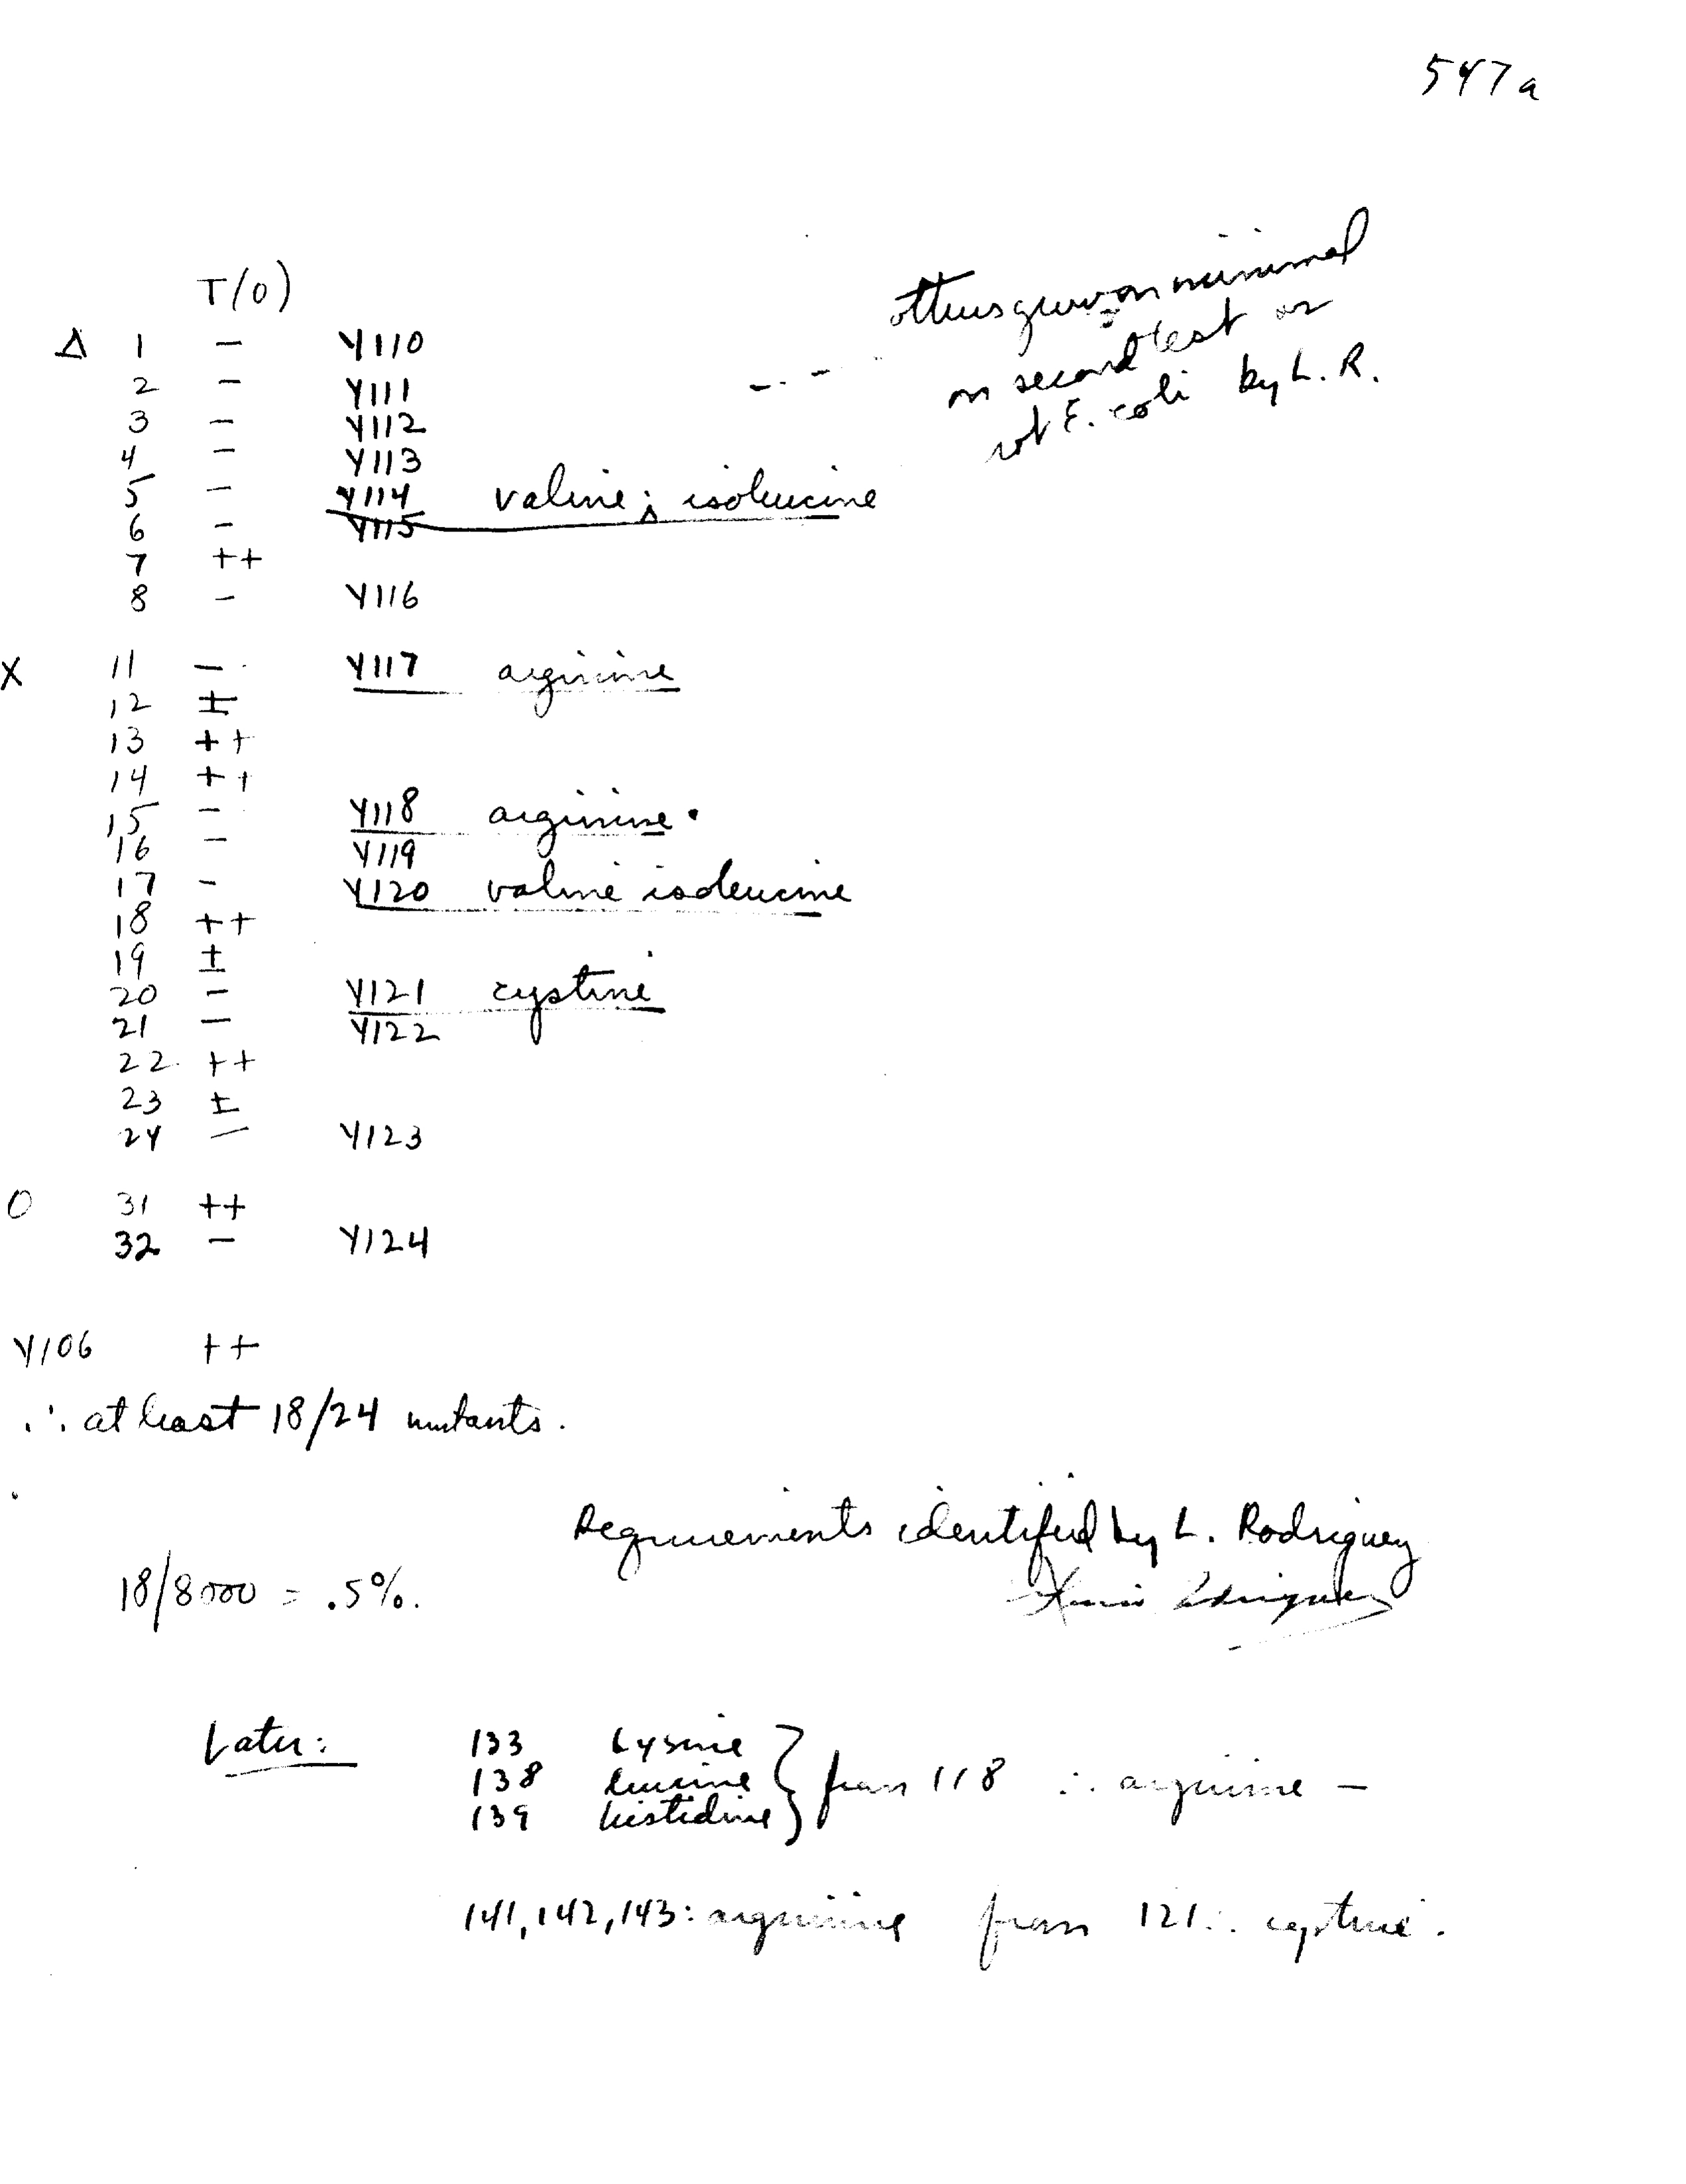 547a
T(0)
others grow on minimal
on second test or
not E. coli by L. R.
Δ 1 - Y110
2 - Y111
3 - Y112
4 - Y113
5 - Y114 valine; isoleucine
6 - Y115
7 ++
8 - Y116
X 11 - Y117 arginine
12 ±
13 ++
14 ++
15 - Y118 arginine.
16 - Y119
17 - Y120 valine isoleucine
18 ++
19 ±
20 - Y121 cystine
21 - Y122
22 ++
23 ±
24 - Y123
O 31 ++
32 - Y124
Y106 ++
∴ at least 18/24 mutants.
Requirements identified by L. Rodriguez
18/8000 = .5%.
Later: 133 Lysine
138 leucine } from 118 ∴ arginine -
139 histidine
141, 142, 143: arginine from 121 ∴ cystine.